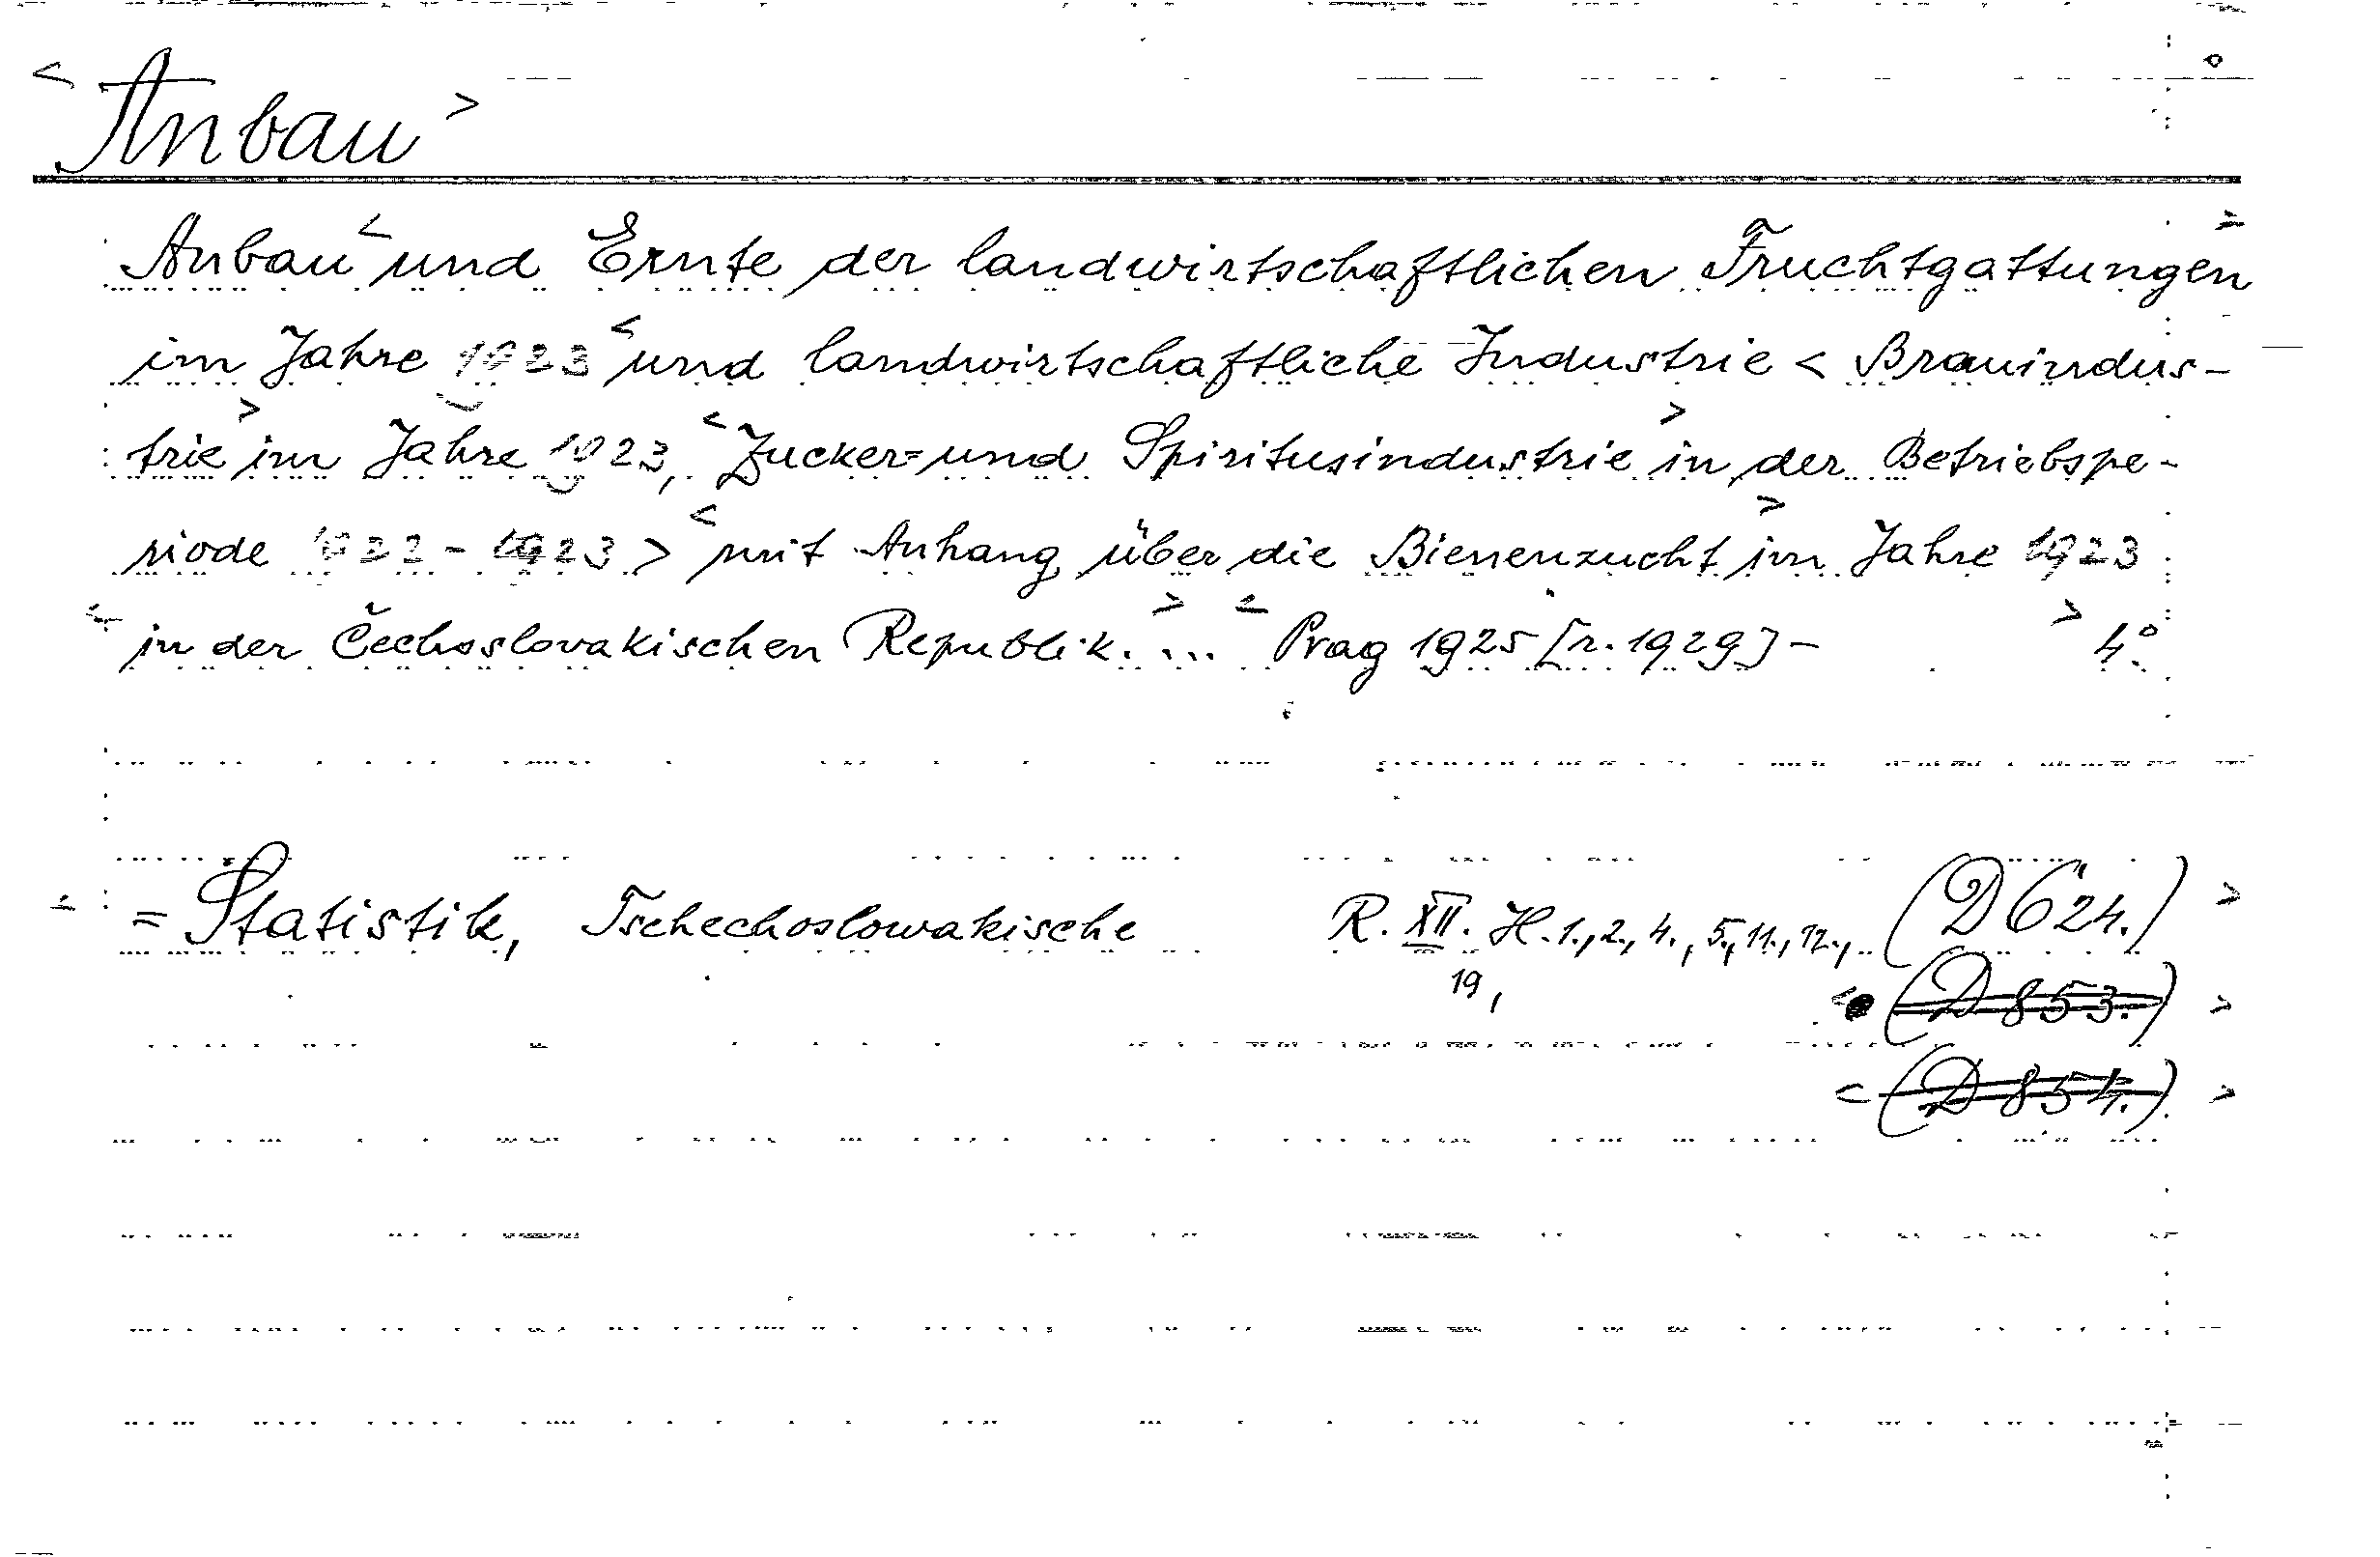 <Anbau>
Anbau< und Ernte der landwirtschaftlichen Fruchtgattungen>
im Jahre 1923 <und landwirtschaftliche Industrie < Brauindus-
trie> im Jahre 1923, <Zucker= und Spiritusindustrie> in der Betriebspe-
riode 1922 - 1923 > <mit Anhang über die Bienenzucht> im Jahre 1923
<in der Čechoslovakischen Republik. ...> < Prag 1925 [r. 1929] - > 4°.
< = Statistik, Tschechoslowakische R. XII. H. 1., 2., 4., 5., 11., 12., (D 624.) >
19,
< (D 853.) >
< (D 854.) >